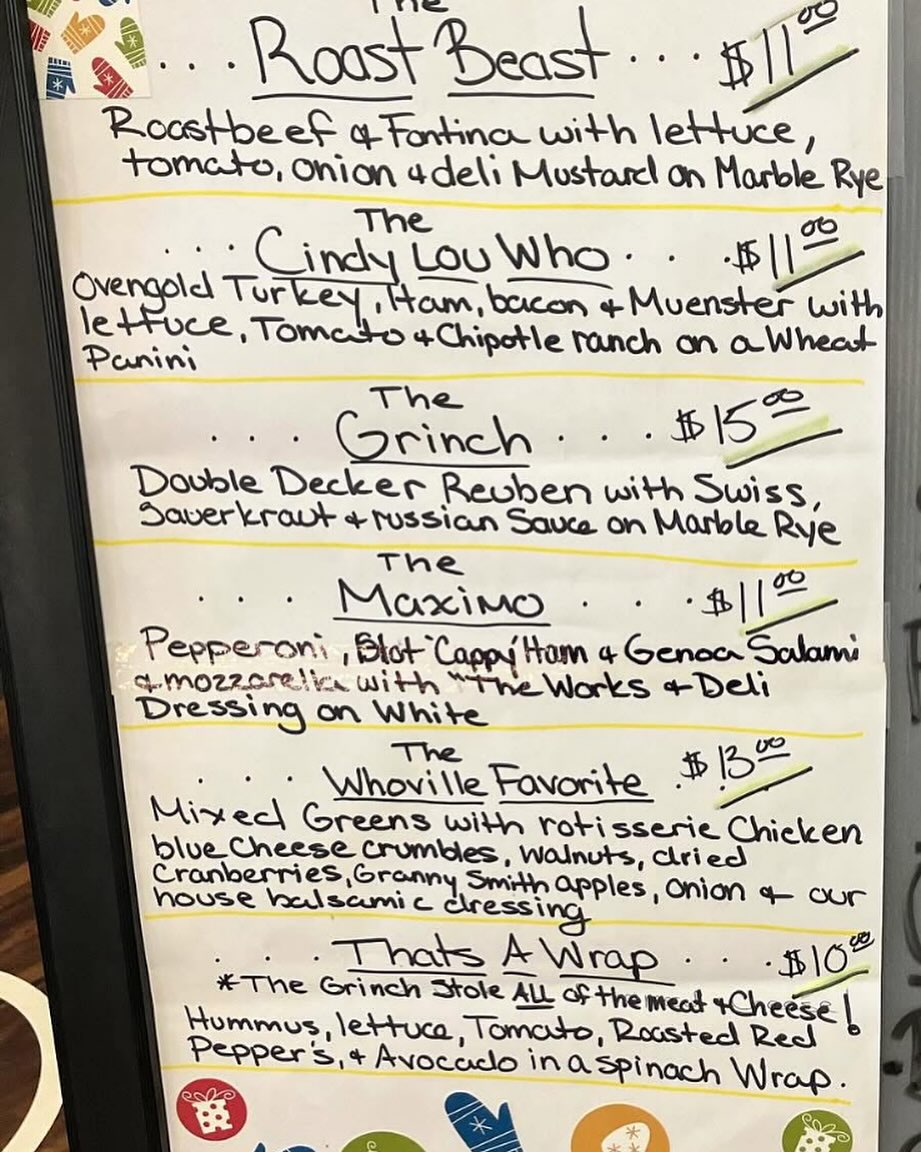 The
... Roast Beast ... $11.00
Roastbeef & Fontina with lettuce,
tomato, onion & deli Mustard on Marble Rye
The
... Cindy Lou Who .. .$11.00
Ovengold Turkey, Ham, bacon & Muenster with
lettuce, Tomato & Chipotle ranch on a Wheat
Panini
The
... Grinch ... $15.00
Double Decker Reuben with Swiss,
Sauerkraut & russian Sauce on Marble Rye
The
... Maximo ... $11.00
Pepperoni, Hot "Cappy" Ham & Genoa Salami
& mozzarella with "The Works & Deli
Dressing on White
The
... Whoville Favorite . $13.00
Mixed Greens with rotisserie Chicken
blue Cheese crumbles, walnuts, dried
Cranberries, Granny Smith apples, onion & our
house balsamic dressing
... Thats A Wrap ... $10.00
*The Grinch Stole ALL of the meat & Cheese!
Hummus, lettuce, Tomato, Roasted Red
Pepper's, & Avocado in a spinach Wrap.